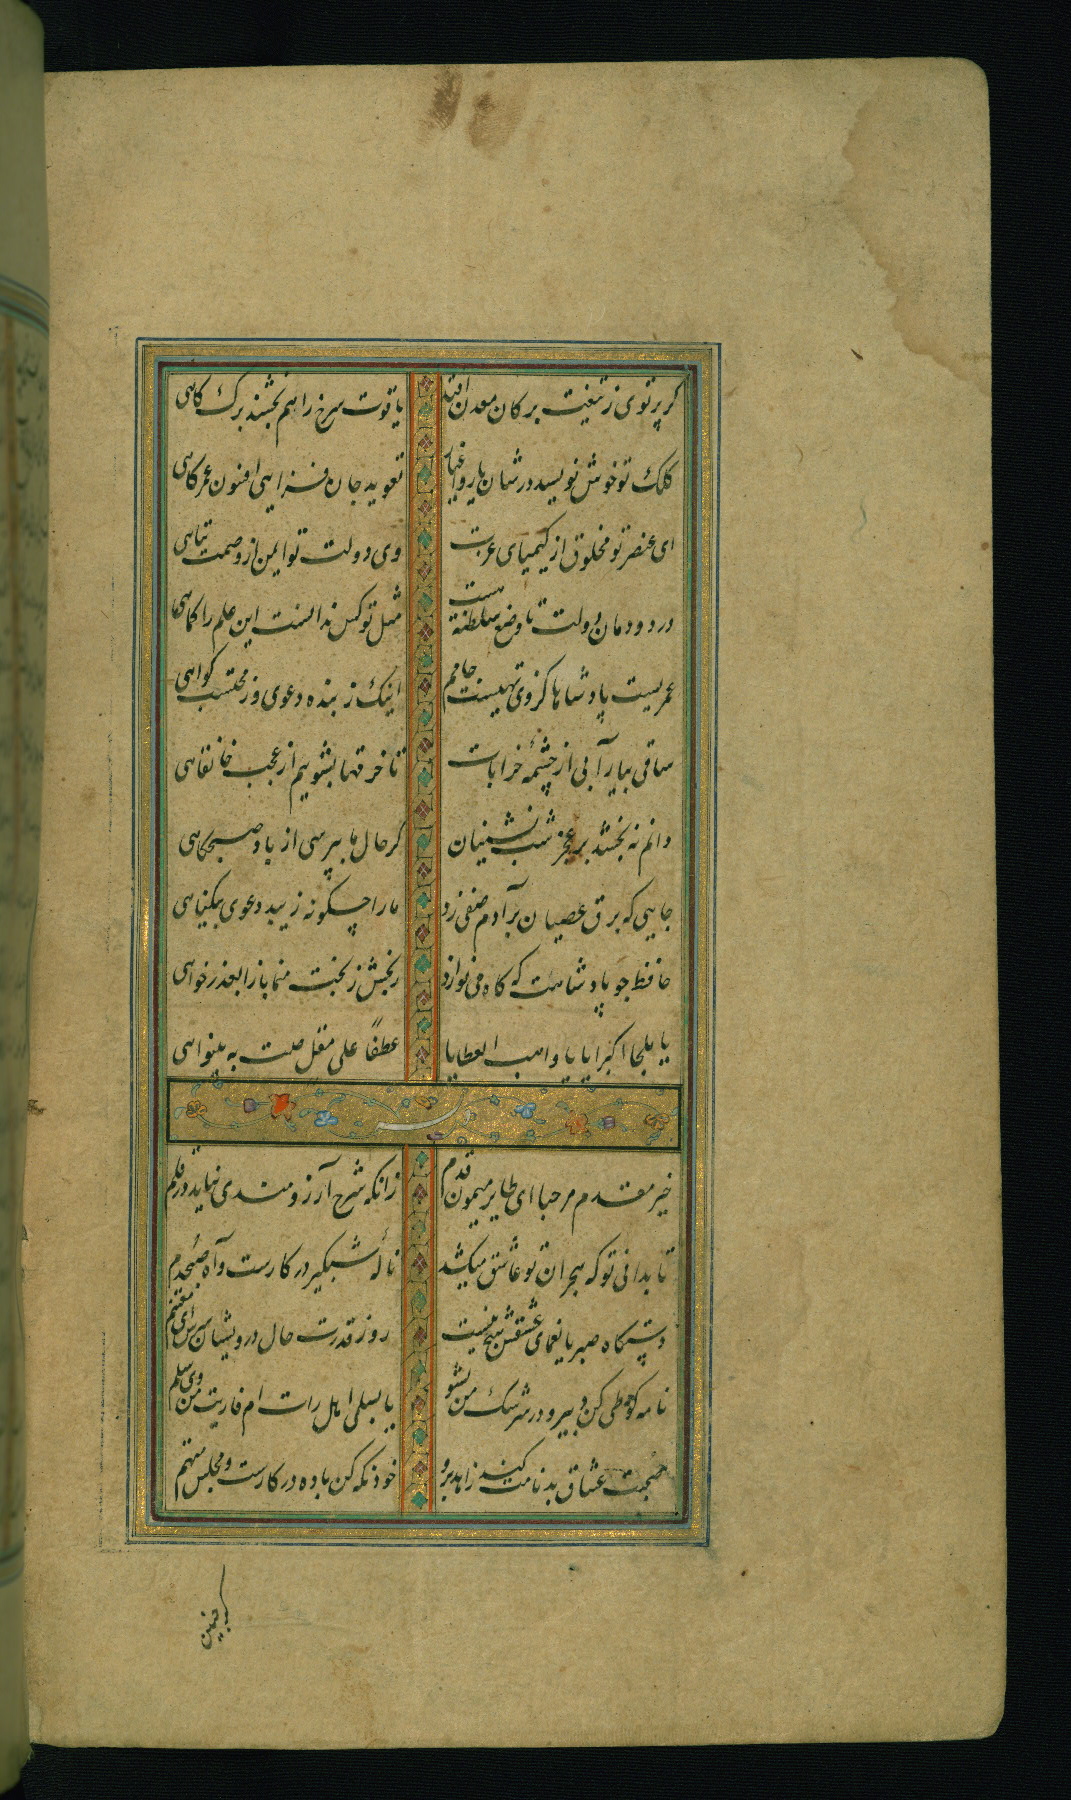 کر پرتوی ز تیغت بر کان معدن افتد یاقوت سرخ را هم بخشند برک کاهی
کلک تو خوش نویسد در شان یار و اغیار تعوید جان فزایی افنون عمر کاهی
ای عنصر تو مخلوق از کیمیای عزت وی دولت تو ایمن از وصمت تباهی
در دودمان دولت تا وضع سلطنة هست مثل تو کس ندانست این علم را کماهی
عمریست پادشاها کز وی تهیست جامم اینک ز بنده دعوی وز محتسب کواهی
ساقی بیار آبی از چشمهٔ خرابات تا خرقها بشوییم از عجب خانقاهی
دانم نه بخشد بر عجز شب نشینیان کر حال ما بپرسی از باد صبحکاهی
جایی که برق عصیان بر آدم صفی زد ما را چکونه زیبد دعوی بیکناهی
حافظ جو پادشاهت که کاه می نوازد رنجش ز بخت منما باز ا بعذر خواهی
یا ملجا اکبرایا یا واهب العطایا عطفًا علی مقل حلت به بینواهی
خیر مقدم مرحبا ای طایر میمون قدم زانکه شرح آرزومندی نیاید در قلم
تا بدانی تو که هجران تو عاشق میکشد نالهٔ شبکیر در کارست و آه صبحدم
دستکاه صبر یا یغمای عشقش هیچ نیست روز قدرت حال درویشان بپرس ای مغتنم
نامه کو طی کن دبیر و در سرشک من بشو
صحبت عشاق بدنامت کند زاهد برو خود نکه کن باده در کارست و مجلس متهم